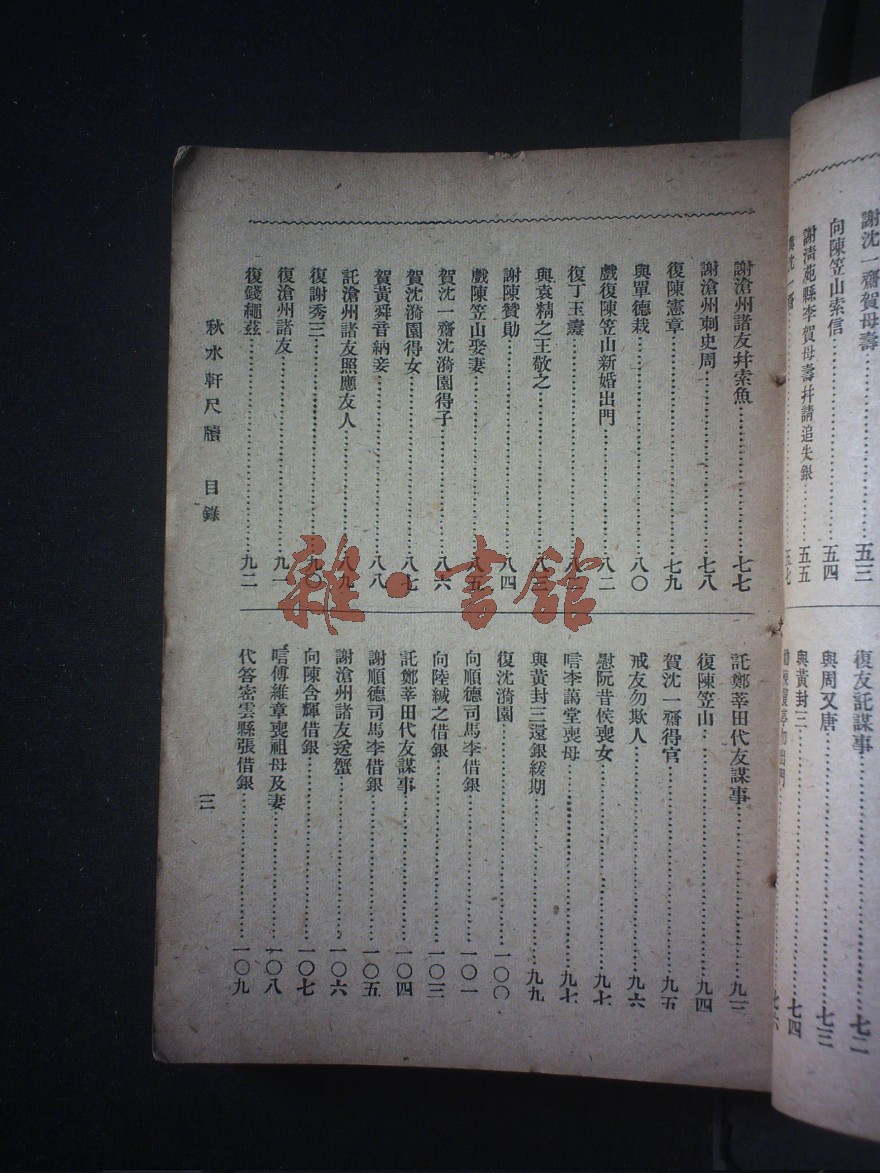 謝沈一齋賀母壽……五三
向陳笠山索信……五四
謝清苑縣李賀母壽幷請追失銀……五五
與沈一齋……五七
復友託謀事……七二
與周又唐……七三
與黃封三……七四
謝滄州諸友幷索魚……七七
謝滄州刺史周……七八
復陳憲章……七九
與單德栽……八〇
戲復陳笠山新婚出門……八二
復丁玉
與袁精之王敬之……八三
謝陳贊勛……八四
戲陳笠山娶妻……八五
賀沈一齋沈漪園得子……八六
賀沈漪園得女……八七
賀黃舜音納妾……八八
託滄州諸友照應友人……八九
復謝秀三……九〇
復滄州諸友……九一
復錢繩茲……九二
託鄭莘田代友謀事……九三
復陳笠山……九四
賀沈一齋得官……九五
戒友勿欺人……九六
慰阮昔侯喪女……九七
唁李藹堂喪母……九七
與黃封三還銀緩期……九九
復沈漪園……一〇〇
向順德司馬李借銀……一〇一
向陸緘之借銀……一〇三
託鄭莘田代友謀事……一〇四
謝順德司馬李借銀……一〇五
謝滄州諸友送蟹……一〇六
向陳含輝借銀……一〇七
唁傅維章喪祖母及妻……一〇八
代答密雲縣張借銀……一〇九
秋水軒尺牘 目錄
三
雜·書館